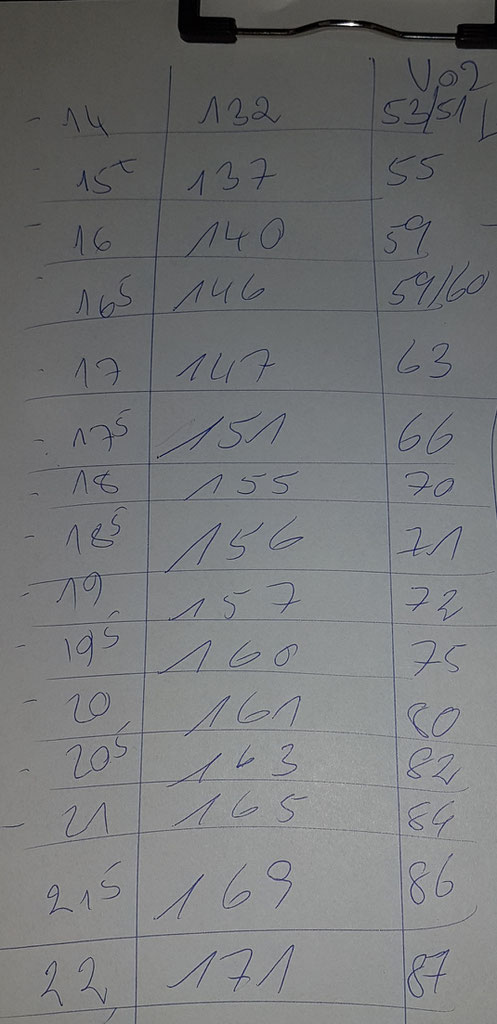 Vo2
- 14 132 53/51
- 15⁵ 137 55
- 16 140 59
- 16⁵ 146 59/60
- 17 147 63
- 17⁵ 151 66
- 18 155 70
- 18⁵ 156 71
- 19 157 72
- 19⁵ 160 75
- 20 161 80
- 20⁵ 163 82
- 21 165 84
21⁵ 169 86
22 171 87